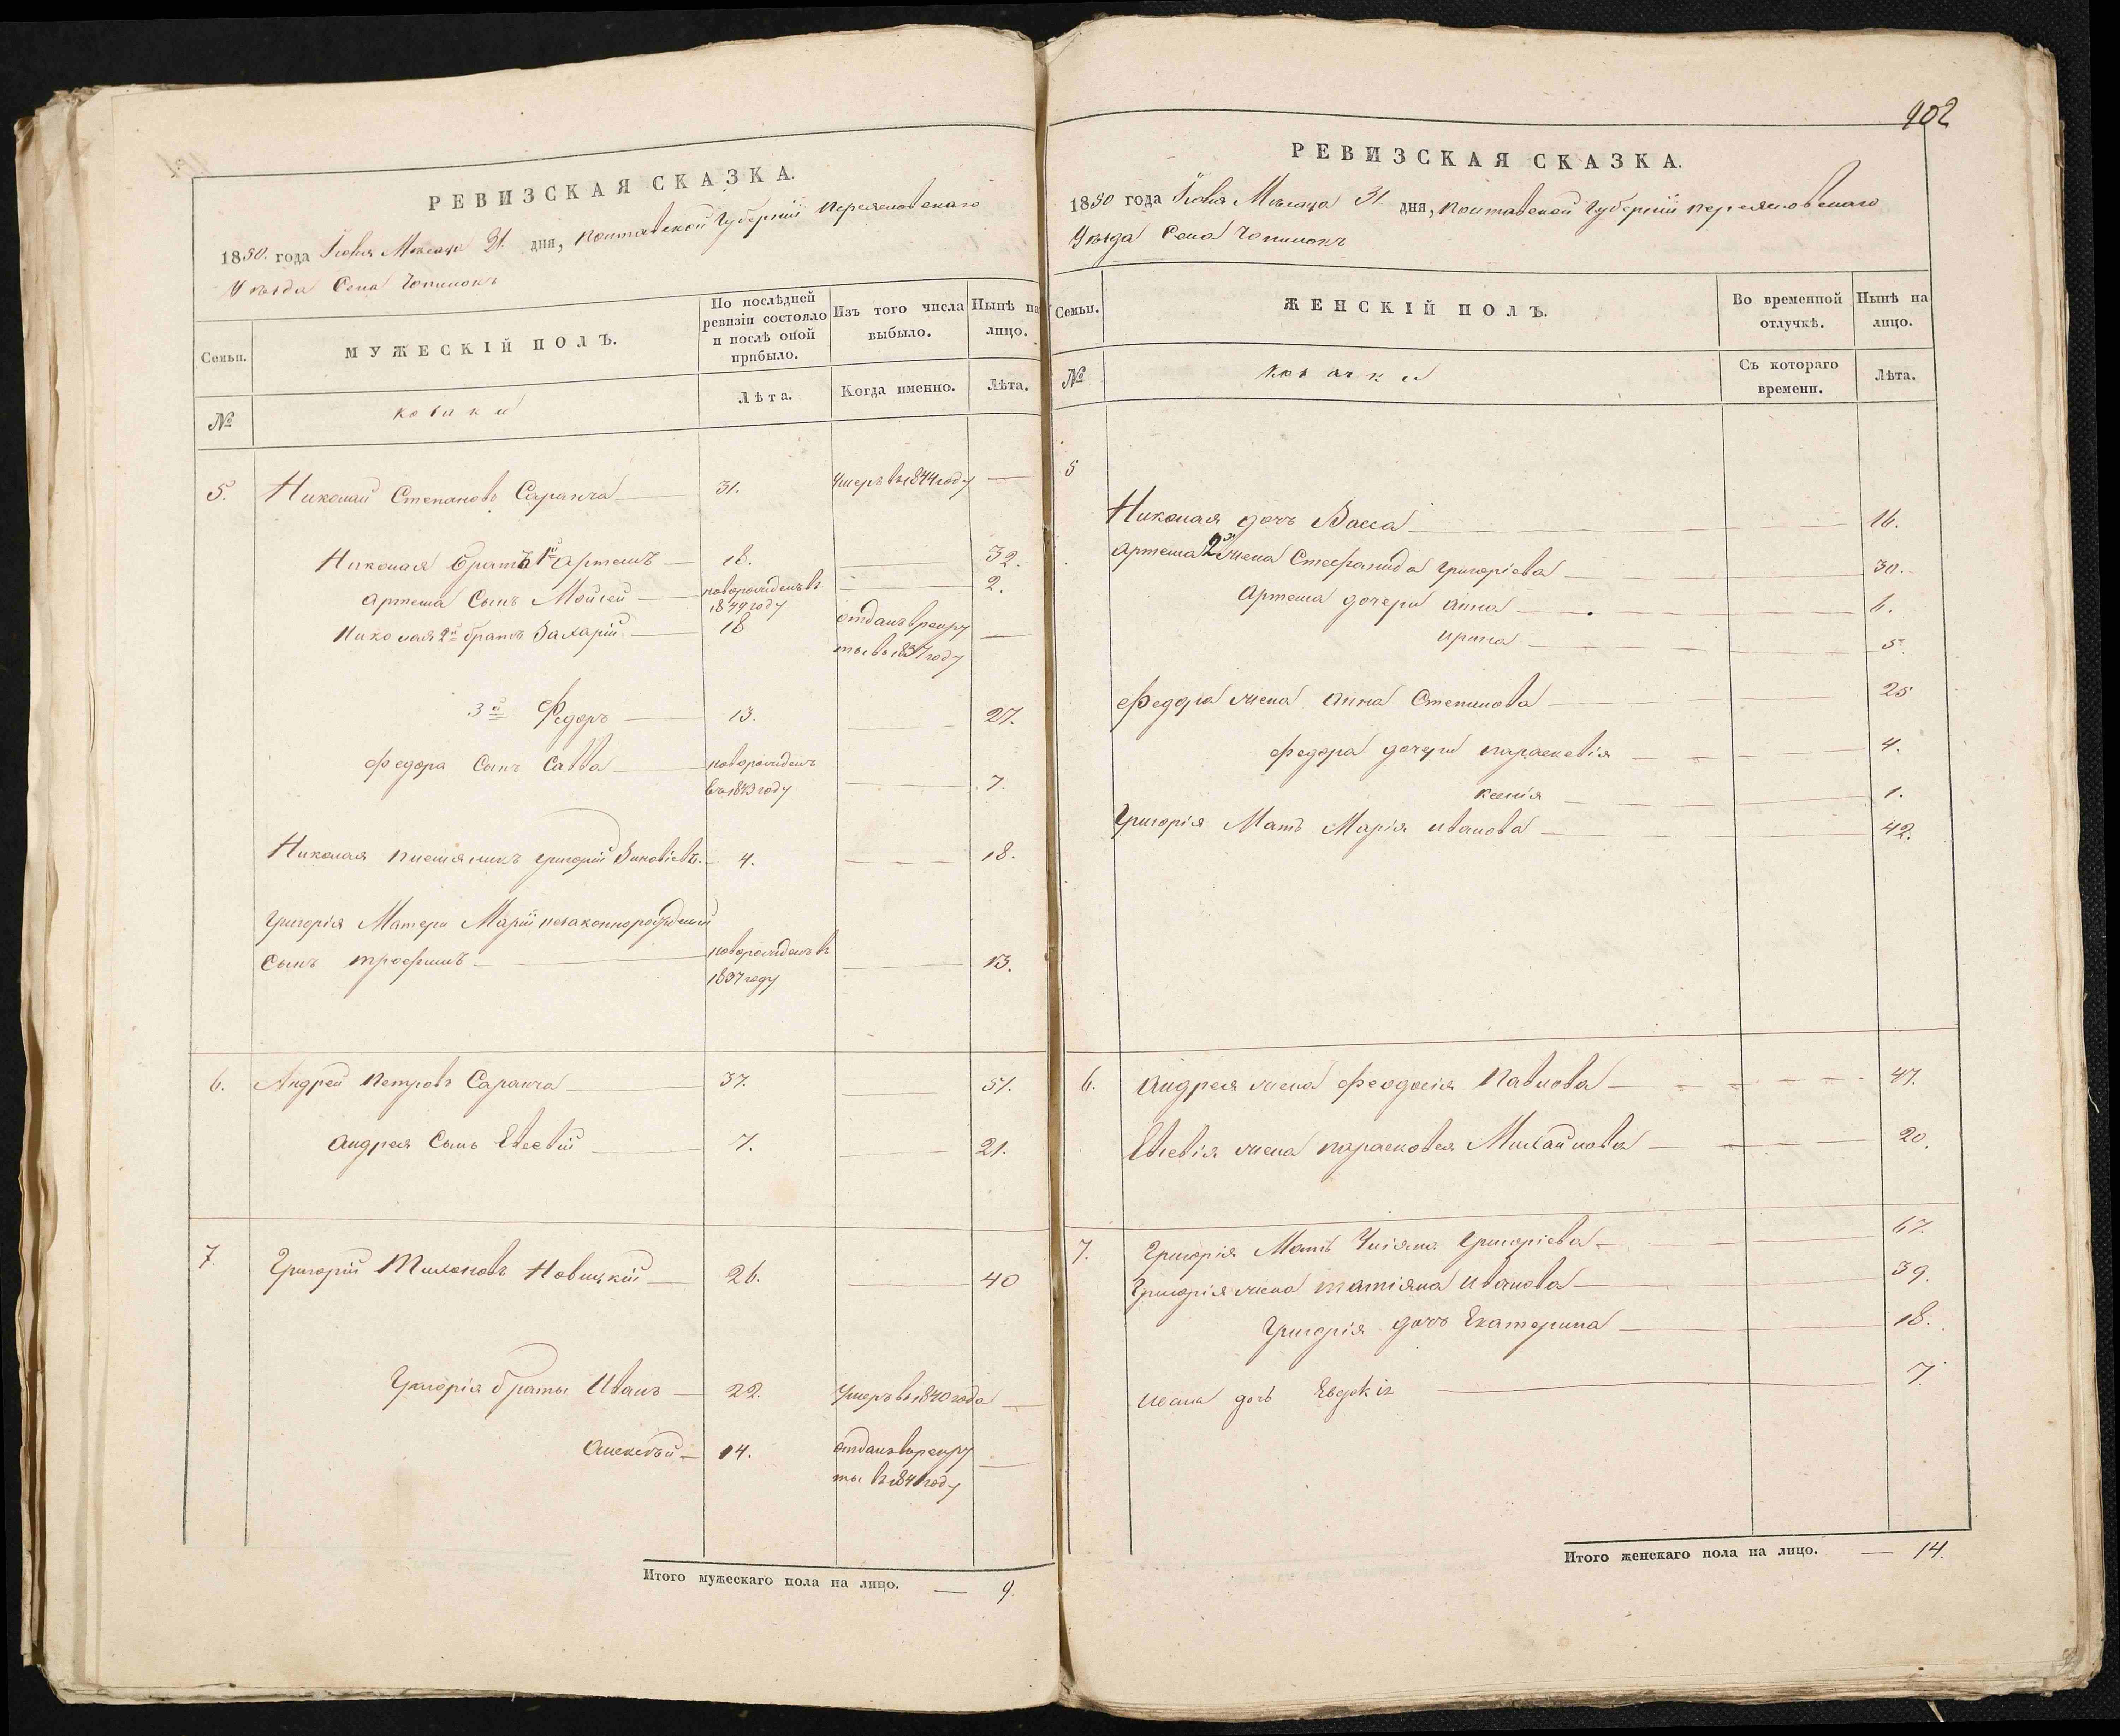 902
РЕВИЗСКАЯ СКАЗКА.
1850 года Іюля Мѣсяца 31 дня, Полтавской Губерніи Переяславскаго
Уѣзда Села
Семьи.
МУЖЕСКІЙ ПОЛЪ.
По послѣдней
ревизіи состояло
и послѣ оной
прибыло.
Изъ того числа
выбыло.
Нынѣ на
лицо.
№
козаки
Лѣта.
Когда именно.
Лѣта.
5. Николай Степановъ Саранча 31. Умеръ въ 1844 году —
Николая братъ 1й Артемъ 18. — 32.
Артема Сынъ Мойсей новорожденъ въ — 2.
1849 году
Николая 2й братъ Захарій 18 отданъ в рекру —
ты въ 1837 году
3й Федоръ 13. — 27.
Федора Сынъ Савва новорожденъ
въ 1843 году — 7.
Николая племяникъ Григорій Зиновіевъ 4. — 18.
Григорія Матери Маріи незаконнорожденный
Сынъ Трофимъ новорожденъ въ — 13.
1837 году
6. Андрей Петровъ Саранча 37. — 51.
Андрея Сынъ Евсевій 7. — 21.
7. Григорій Тихоновъ Новицкій 26. — 40
Григорія браты Иванъ 22. Умеръ въ 1840 года —
Алексѣй 14. отданъ въ рекру —
ты въ 1841 году
Итого мужескаго пола на лицо. — 9.
РЕВИЗСКАЯ СКАЗКА.
1850 года Іюля Мѣсяца 31 дня, Полтавской Губерніи Переяславскаго
Уѣзда Села
Семьи.
ЖЕНСКІЙ ПОЛЪ.
Во временной
отлучкѣ.
Нынѣ на
лицо.
№
козачки
Съ котораго
времени.
Лѣта.
5
Николая дочь Васса 16.
Артема 2я жена Стефанида Григоріева 30.
Артема дочери Анна 6.
Ирина 5.
Федора жена Анна Степанова 25
Федора дочери Параскевія 4.
Ксенія 1.
Григорія Мать Марія Иванова 42.
6. Андрея жена Феодосія Павлова 47.
Евсевія жена Парасковея Михайлова 20.
7. Григорія Мать Уліяна Григоріева 67.
Григорія жена Татіяна Иванова 39.
Григорія дочь Екатерина 18.
Ивана дочь Евдокія 7.
Итого женскаго пола на лицо. — 14.